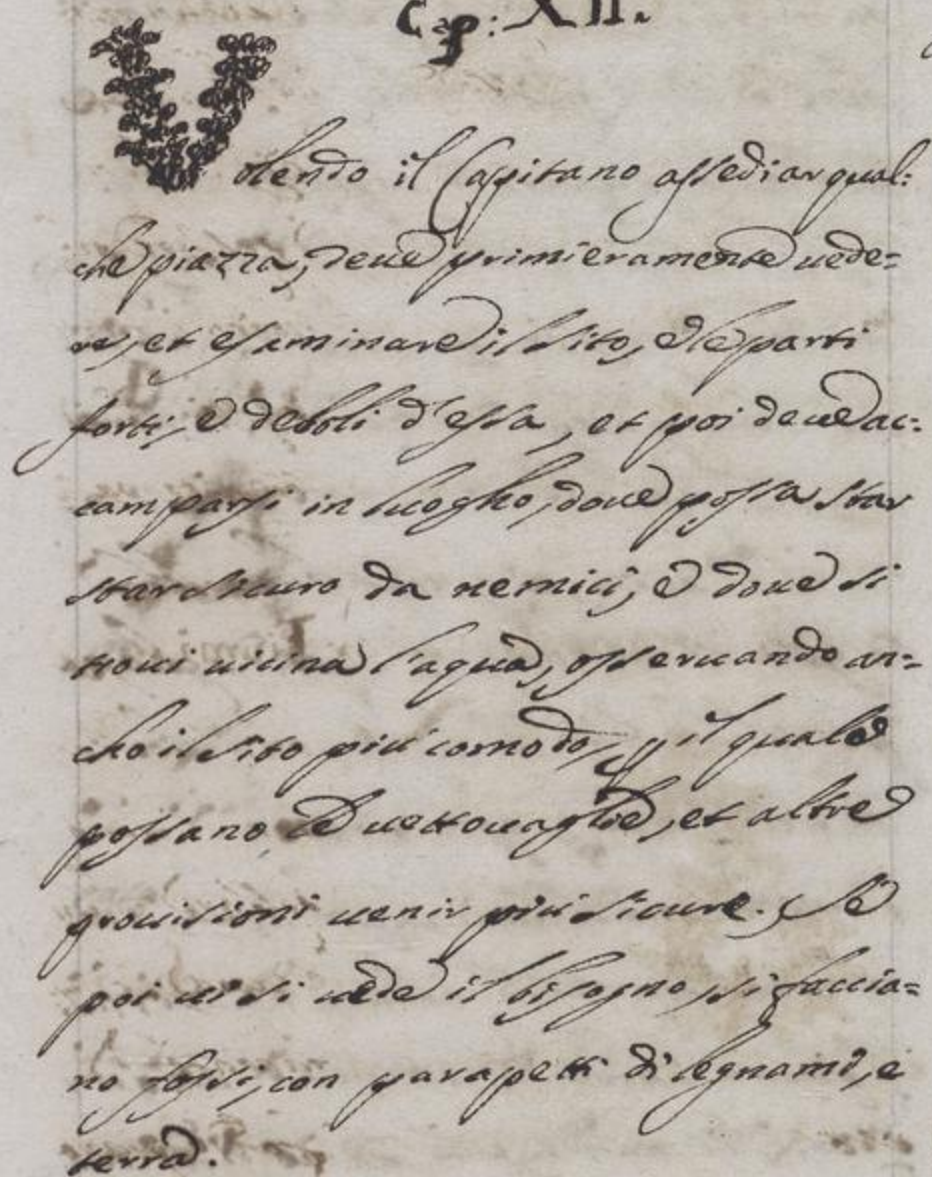 Cap: XII.
Volendo il Capitano assediar qual:
che piazza, deue primieramente uede=
re, et essaminare il sito, e le parti
forti, e deboli d'essa, et poi deue ac:
camparsi in luogho, doue possa star
star sicuro da nemici, e doue si
troui uicina l'aqua, osseruando an=
cho il sito piu comodo, p il quale
possano le uettouaglie, et altre
prouisioni uenir piu sicure. Se
poi ui si uede il bisogno, si faccia=
no fossi, con parapetti di legnami, e
terra.